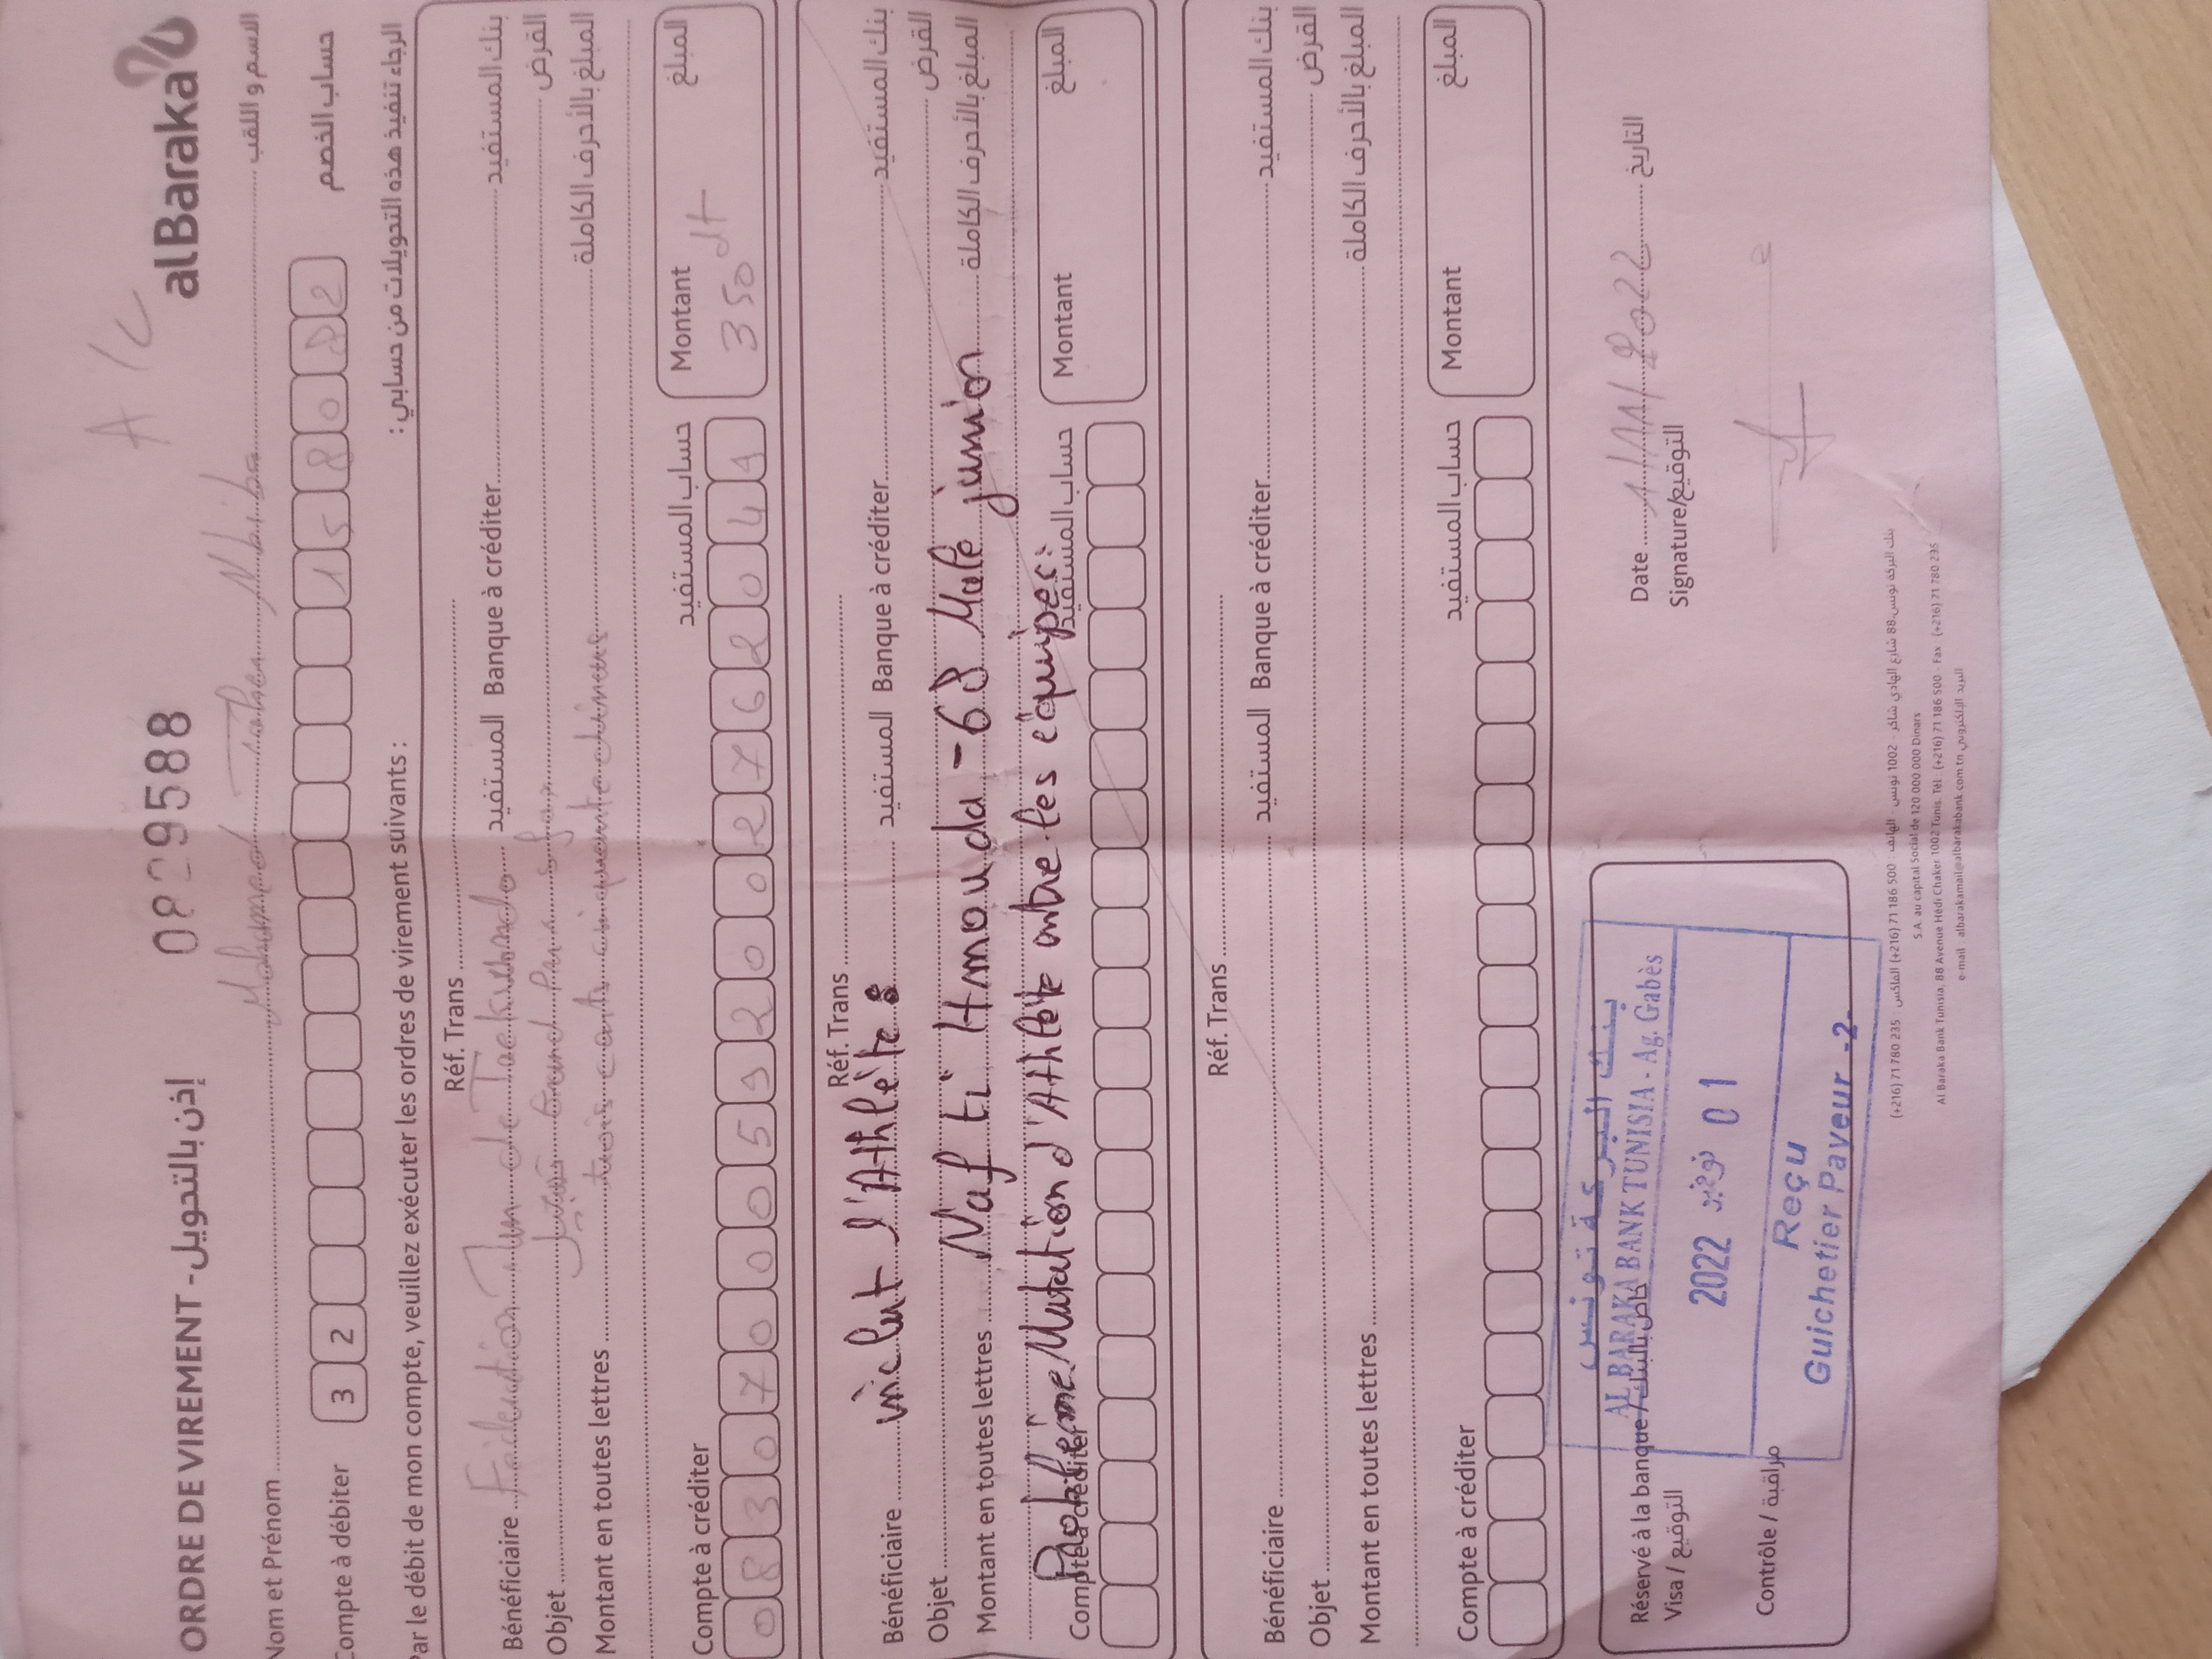 A/C
ORDRE DE VIREMENT - إذن بالتحويل 0829588 alBaraka
Nom et Prénom Mohamed Taher الاسم و اللقب
Compte à débiter 3 2 1 5 8 0 2 حساب الخصم
Par le débit de mon compte, veuillez exécuter les ordres de virement suivants : الرجاء تنفيذ هذه التحويلات من حسابي :
Réf. Trans
Bénéficiaire Fédération Tun de Taekwondo المستفيد Banque à créditer بنك المستفيد
Objet Grand Prix القرض
Montant en toutes lettres trois cents cinquante dinars المبلغ بالأحرف الكاملة
Compte à créditer حساب المستفيد Montant المبلغ
0 8 3 0 7 0 0 0 5 9 2 0 0 2 7 6 2 0 4 9 350 dt
Réf. Trans
Bénéficiaire inclut l'Athlète المستفيد Banque à créditer بنك المستفيد
Objet القرض
Montant en toutes lettres Nafti Hmouda -68 Male junior المبلغ بالأحرف الكاملة
Problème Mutation d'Athlète entre les équipes
Compte à créditer حساب المستفيد Montant المبلغ
Réf. Trans
Bénéficiaire المستفيد Banque à créditer بنك المستفيد
Objet القرض
Montant en toutes lettres المبلغ بالأحرف الكاملة
Compte à créditer حساب المستفيد Montant المبلغ
Réservé à la banque / خاص بالبنك
Visa / التوقيع
Contrôle / مراقبة
بنك البركة تونس
AL BARAKA BANK TUNISIA - Ag. Gabès
2022 نوفمبر 01
Reçu
Guichetier Payeur -2
Date 1/11/2022 التاريخ
Signature/التوقيع
بنك البركة تونس 88، شارع الهادي شاكر - 1002 تونس - الهاتف : 500 186 71 (216+) الفاكس : 235 780 71 (216+)
S.A. au capital Social de 120 000 000 Dinars
Al Baraka Bank Tunisia, 88 Avenue Hédi Chaker 1002 Tunis. Tél. (+216) 71 186 500 - Fax (+216) 71 780 235
e-mail albarakamail@albarakabank.com.tn البريد الإلكتروني